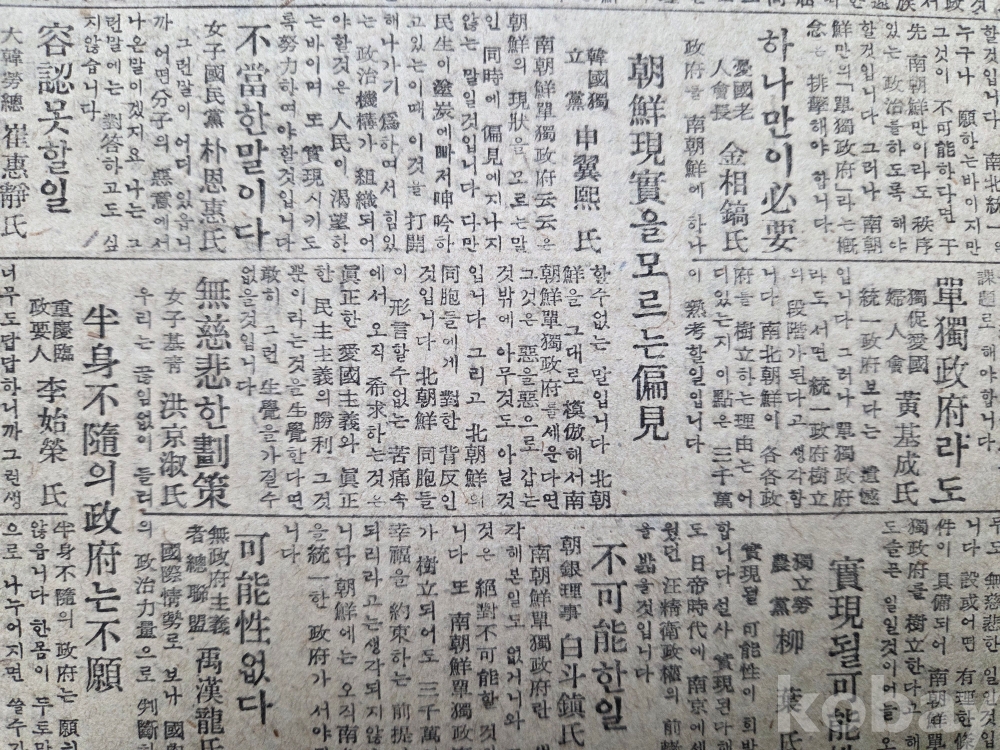 할것입니다 南北統一의
누구나 願하는바이지만
그것이 不可能하다면 于
先 南朝鮮만이라도 秩序
있는 政治를하도록 해야
할것입니다 그러나 南朝
鮮만의「單獨政府」라는 槪
念을 排擊해야 합니다
하나만이必要
憂國老
人會長 金相鎬氏
政府를 南朝鮮에 하나
課題로 해야합니다
單獨政府라도
獨促愛國
婦人會 黃基成氏
統一政府보다는 遺憾
입니다 그러나 單獨政府
라도 서면 統一政府樹立
의 段階가된다고 생각합
니다 南北朝鮮이 各各政
府를 樹立하는 理由는 어
디있는지 이點은 三千萬
이 熟考할일입니다
朝鮮現實을모르는偏見
韓國獨
立黨 申翼熙 氏
南朝鮮單獨政府云云은
朝鮮의 現狀을 모르는말
인 同時에 偏見에지나지
않는 말일것입니다 다만
民生이 塗炭에빠저呻吟하
고있는이때 이것을 打開
해나가기 爲하여서 힘있
는 政治機構가 組織되어
야할것은 人民이 渴望한
는바이며 또 實現시키도
록努力하여야할것입니다
不當한말이다
女子國民黨 朴恩惠氏
그런말이 어데 있읍니
까 어떤分子의 惡意에서
나온말이겠지요 나는 그
런말에는 對答하고도 싶
지않습니다
容認못할일
大韓勞總 崔惠靜氏
할수없는 말입니다 北朝
鮮을 그대로 模倣해서南
朝鮮單獨政府를세운다면
그것은 惡을惡으로 갑는
것밖에 아무것도 아닐것
입니다 그리고 北朝鮮의
同胞들에게 對한 背反인
것입니다 北朝鮮 同胞들
이 形言할수없는 苦痛속
에서 오직 希求하는것은
眞正한 愛國主義와 眞正
한 民主主義의 勝利 그것
뿐이라는것을生覺한다면
敢히 그런 生覺을가질수
없을것입니다
無慈悲한劃策
女子基靑 洪京淑氏
우리는 끊임없이 들리
半身不隨의政府는不願
重慶臨
政要人 李始榮 氏
너무도답답하니까그런생
無慈悲한 일인
니다 設或어떤 有理한條
件이 具備되어 南朝鮮單
獨政府를 樹立한다고해
도슬픈 일일것이어늘
實現될可能
獨立勞
農黨 柳 葉 氏
實現될 可能性이 희박
합니다 선사 實現된다해
도 日帝時代에 南京에세
웠던 汪精衛政權의 前轍
을 밟을것입니다
不可能한일
朝銀理事 白斗鎭氏
南朝鮮單獨政府란 생
각해본일도 없거니와
것은 絕對不可能할 것
니다 또 南朝鮮單獨政
가 樹立되어도 三千萬
幸福을 約束하는 前提
되리라고는생각되지않
니다 朝鮮에는 오직南
을統一한 政府가 서야
니다
可能性없다
無政府主義
者總聯盟 禹漢龍氏
國際情勢로 보나 國
의 政治力量으로 判斷
半身不隨의 政府는 願하
않읍니다 한몸이 두토막
으로 나누어지면 쓸수가